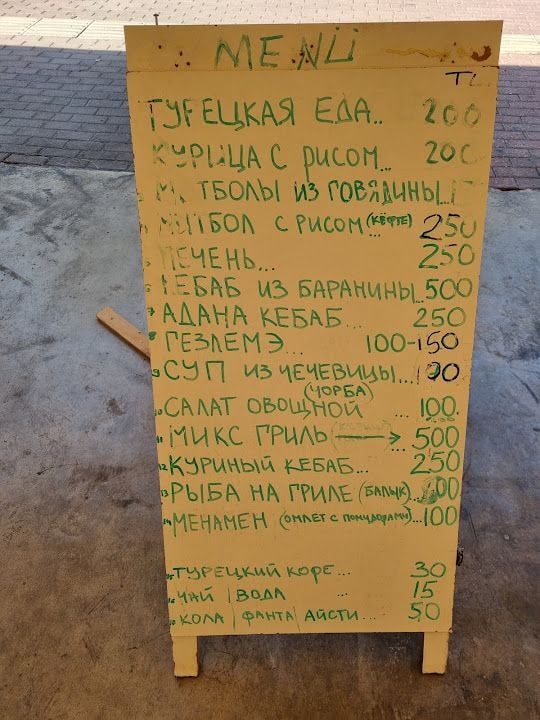 MENÜ
TL
ТУРЕЦКАЯ ЕДА.. 200
КУРИЦА С РИСОМ... 200
МИТБОЛЫ ИЗ ГОВЯДИНЫ...
4 МИТБОЛ С РИСОМ (КЁФТЕ) ... 250
5 ПЕЧЕНЬ... 250
6 КЕБАБ ИЗ БАРАНИНЫ... 500
7 АДАНА КЕБАБ... 250
8 ГЕЗЛЕМЭ... 100-150
9 СУП ИЗ ЧЕЧЕВИЦЫ... 100
(ЧОРБА)
10 САЛАТ ОВОЩНОЙ ... 100.
11 МИКС ГРИЛЬ → 500
12 КУРИНЫЙ КЕБАБ... 250
13 РЫБА НА ГРИЛЕ (БАЛЫК)...
14 МЕНАМЕН (ОМЛЕТ С ПОМИДОРАМИ)...100
15 ТУРЕЦКИЙ КОФЕ... 30
16 ЧАЙ | ВОДА ... 15
КОЛА | ФАНТА | АЙСТИ... 50